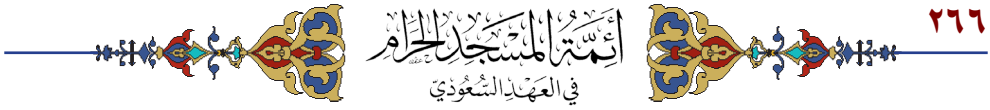 ٢٦٦
أَئِمَّةُ المَسْجِدِ الحَرَامِ
في العَهْدِ السُّعُودِيّ